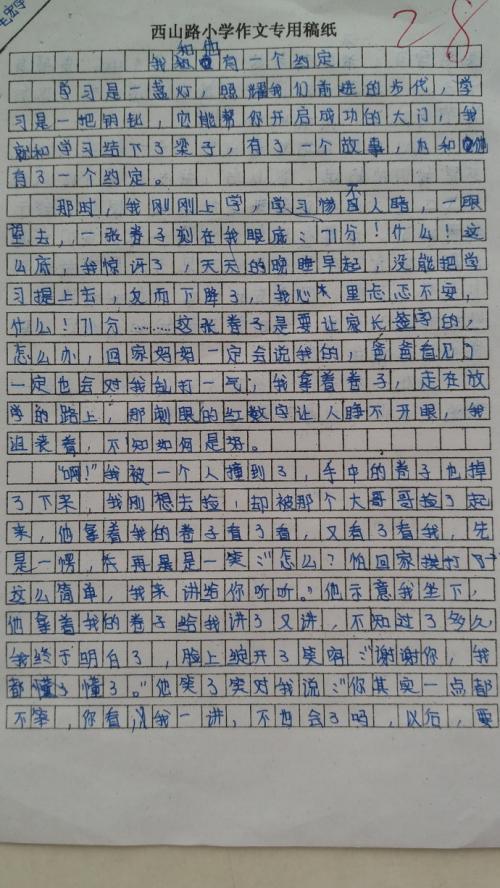 密字
西山路小学作文专用稿纸
28
我和他有一个约定
学习是一盏灯，照耀我们前进的步伐，学
习是一把钥匙，它能帮你开启成功的大门，我
就和学习结下了梁子，有了一个故事，也和他
有了一个约定。
那时，我刚刚上学，学习惨不人睹，一眼
望去，一张卷子刻在我眼底：71分！什么！这
么底，我惊讶了，天天的晚睡早起，没能把学
习提上去，反而下降了，我心里忐忑不安，
什么！71分……这张卷子是要让家长签字的，
怎么办，回家妈妈一定会说我的，爸爸看见了
一定也会对我乱打一气，我拿着卷子，走在放
学的路上，那刺眼的红数字让人睁不开眼，我
沮丧着，不知如何是好。
“啊！”我被一个人撞到了，手中的卷子也掉
了下来，我刚想去捡，却被那个大哥哥捡了起
来，他拿着我的卷子看了看，又看了看我，先
是一愣，再是一笑：“怎么？怕回家挨打
这么简单，我来讲给你听听。”他示意我坐下，
他拿着我的卷子给我讲了又讲，不知过了多久，
我终于明白了，脸上绽开了笑容：“谢谢你，我
都懂了懂了。”他笑了笑对我说：“你其实一点都
不笨，你看，我一讲，不也会了吗，以后，要